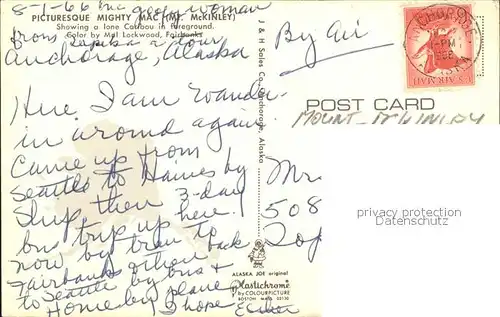 8-1-66
PICTURESQUE MIGHTY MAC (MT. McKINLEY)
Showing a lone Caribou in foreground.
Color by Mel Lockwood, Fairbanks
woman
from Topeka a tour
Anchorage, Alaska
Here I am wander-
in around again
Came up from
Seattle to Haines by
Ship then 3-day
bus trip up here.
now by train to
Fairbanks & then back
to Seattle by bus &
Home by plane
I hope Esther
J & H Sales Co., Anchorage, Alaska
ALASKA JOE original
Plastichrome
BY COLOURPICTURE
BOSTON, MASS. 02130
By air
ANCHORAGE
PM
ALASKA
AIR MAIL
POST CARD
MOUNT McKINLEY
Mr
508
Top
privacy protection
oldthing.de